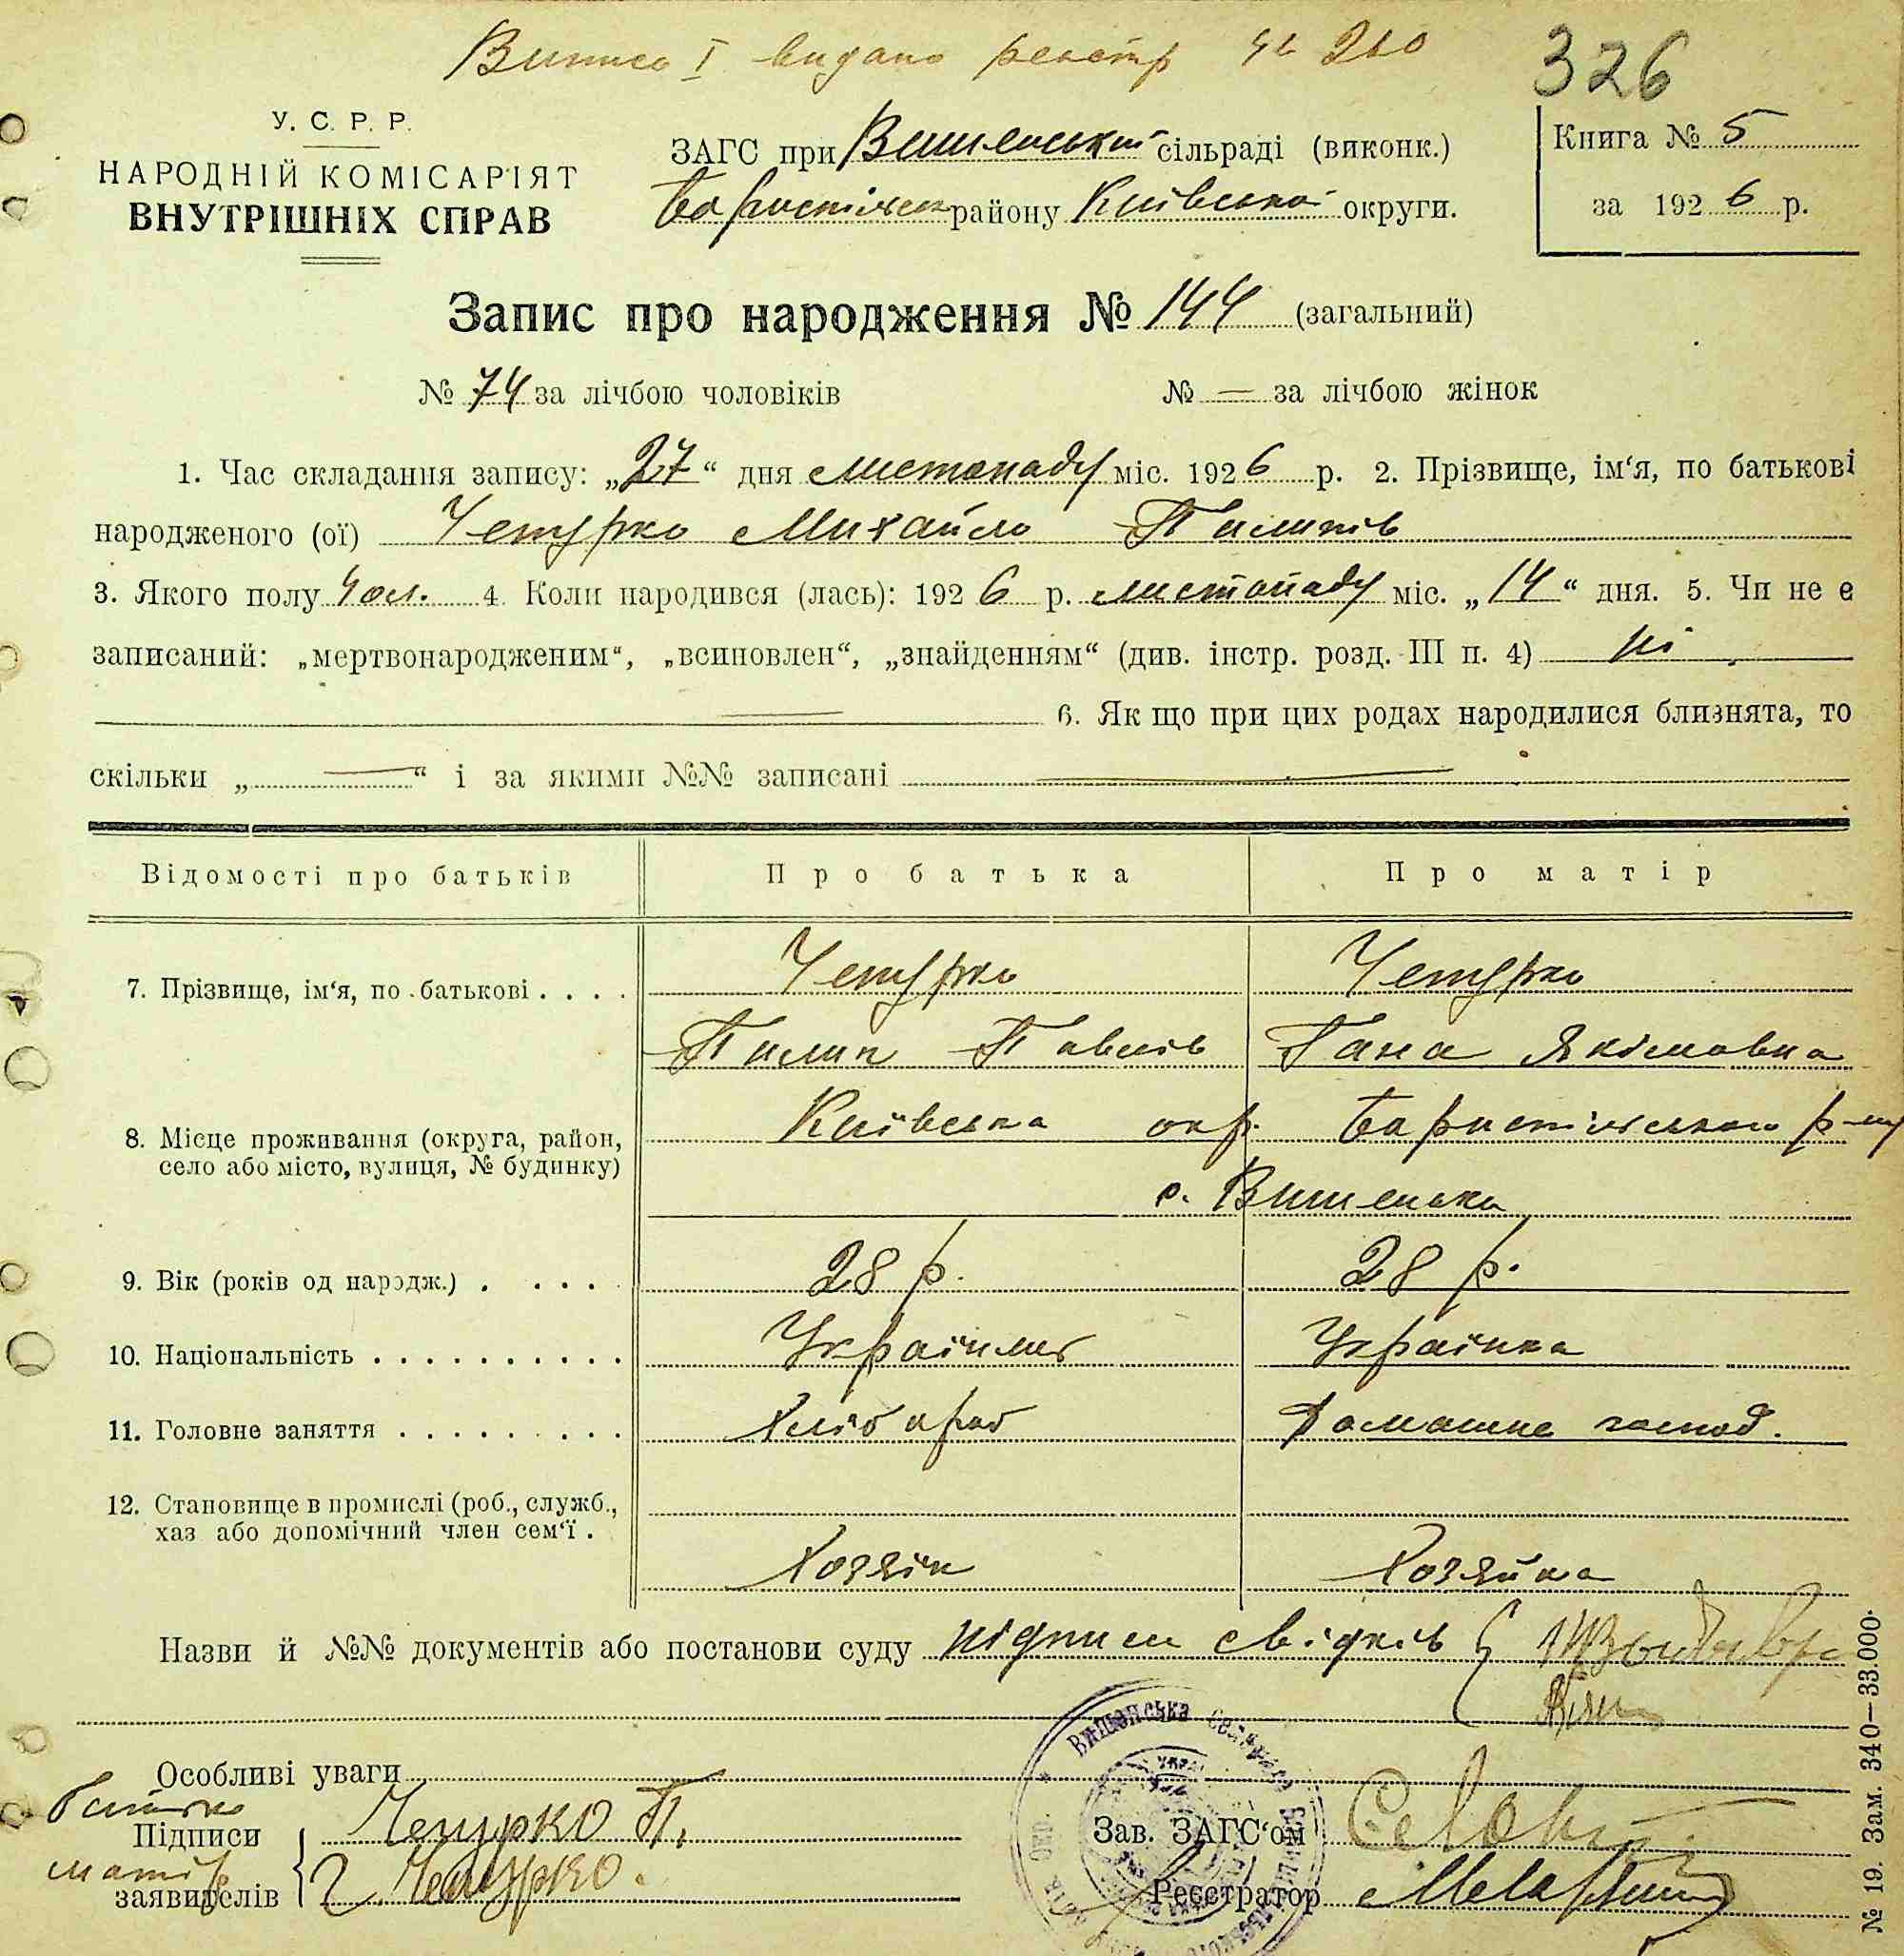 Випис I видано реєстр
326
У. С. Р. Р.
НАРОДНІЙ КОМІСАРІЯТ
ВНУТРІШНІХ СПРАВ
ЗАГС при Вишенський сільраді (виконк.)
Бориспільск району Київської округи.
Книга № 5
за 1926 р.
Запис про народження № 144 (загальний)
№ 74 за лічбою чоловіків № — за лічбою жінок
1. Час складання запису: „27“ дня листопаду міс. 1926 р. 2. Прізвище, ім‘я, по батькові
народженого (ої) Чепурко Михайло Пилипів
3. Якого полу чол. 4. Коли народився (лась): 1926 р. листопаду міс. „14“ дня. 5. Чи не є
записаний: „мертвонародженим“, „всиновлен“, „знайденням“ (див. інстр. розд. III п. 4) ні
— 6. Як що при цих родах народилися близнята, то
скільки „—“ і за якими №№ записані —
Відомості про батьків Про батька Про матір
7. Прізвище, ім‘я, по батькові . . . . Чепурко Чепурко
Пилип Павлів Гана Якімовна
8. Місце проживання (округа, район, Київська окр. Бориспільського р-ну
село або місто, вулиця, № будинку) с. Вишенька
9. Вік (років од народж.) . . . . . 28 р. 28 р.
10. Національність . . . . . . . . . . Українец Українка
11. Головне заняття . . . . . . . . . Хлібороб Домашнє господ.
12. Становище в промислі (роб., служб.,
хаз або допомічний член сем‘ї . Хозяін Хозяйка
Назви й №№ документів або постанови суду підписи свідків {
Особливі уваги
батько
Підписи Чепурко П.
матір
заявителів { Г. Чепурко.
Зав. ЗАГС‘ом
Реєстратор
Вишенська
№ 19. Зам. 340—33.000.